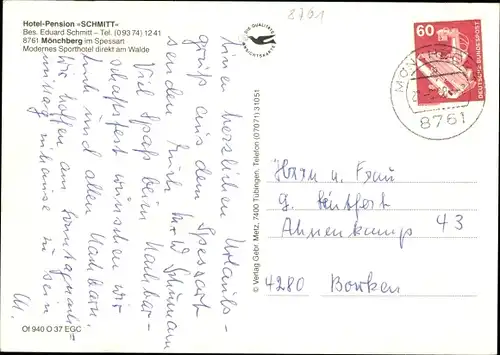 Hotel-Pension »SCHMITT«
Bes. Eduard Schmitt – Tel. (0 93 74) 12 41
8761 Mönchberg im Spessart
Modernes Sporthotel direkt am Walde
8761
DIE QUALITÄTS
ANSICHTSKARTE
60
DEUTSCHE BUNDESPOST
MÖNCHBERG
8761
Einen herzlichen Urlaubs-
gruß aus dem Spessart
senden Euch
Viel Spaß beim Nachbar-
schaftsfest wünschen wir
Euch und allen Nachbarn.
Wir hoffen am Sonntagnach-
mittag zuhause zu sein
M.
© Verlag Gebr. Metz, 7400 Tübingen, Telefon (07071) 31051
Herrn u. Frau
G.
Ahnenkamp 43
4280 Borken
Of 940 O 37 EGC